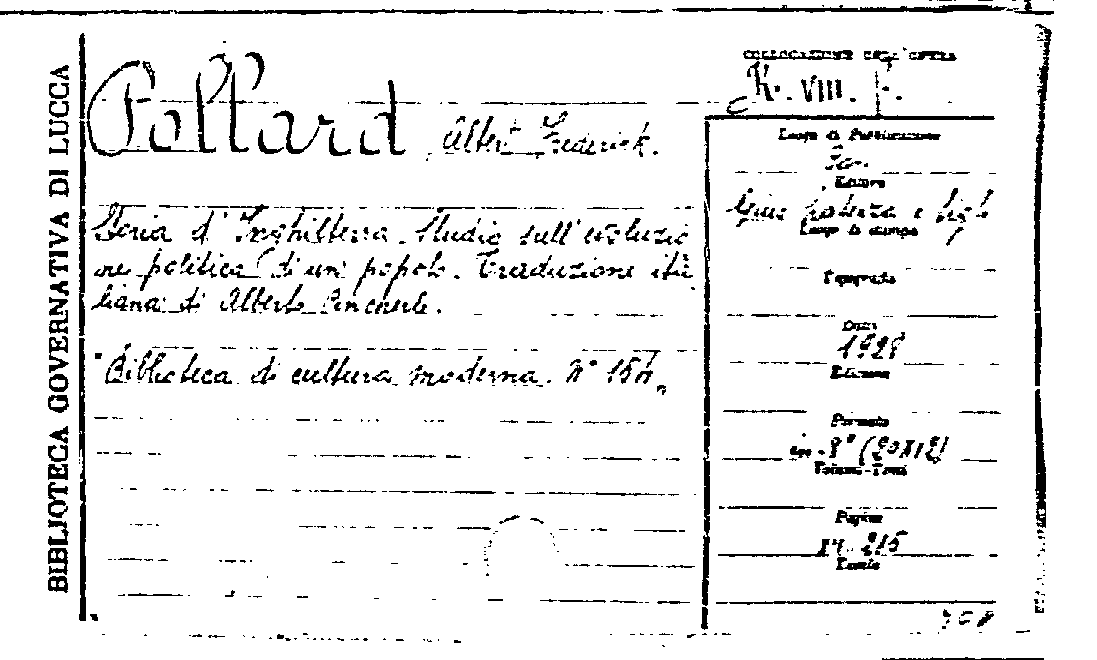 BIBLIOTECA GOVERNATIVA DI LUCCA
Pollard Albert Frederick.
Storia d'Inghilterra. Studio sull'evoluzio
ne politica di un popolo. Traduzione ita
liana di Alberto Pincherle.
"Biblioteca di cultura moderna. N°
COLLOCAZIONE DELL'OPERA
K. VIII. F.
Luogo di Pubblicazione
Bari
Editore
Gius. Laterza e figli
Luogo di stampa
Tipografo
Data
1928
Edizione
Formato
in-8° (20X12)
Volumi-Tomi
Pagine
215